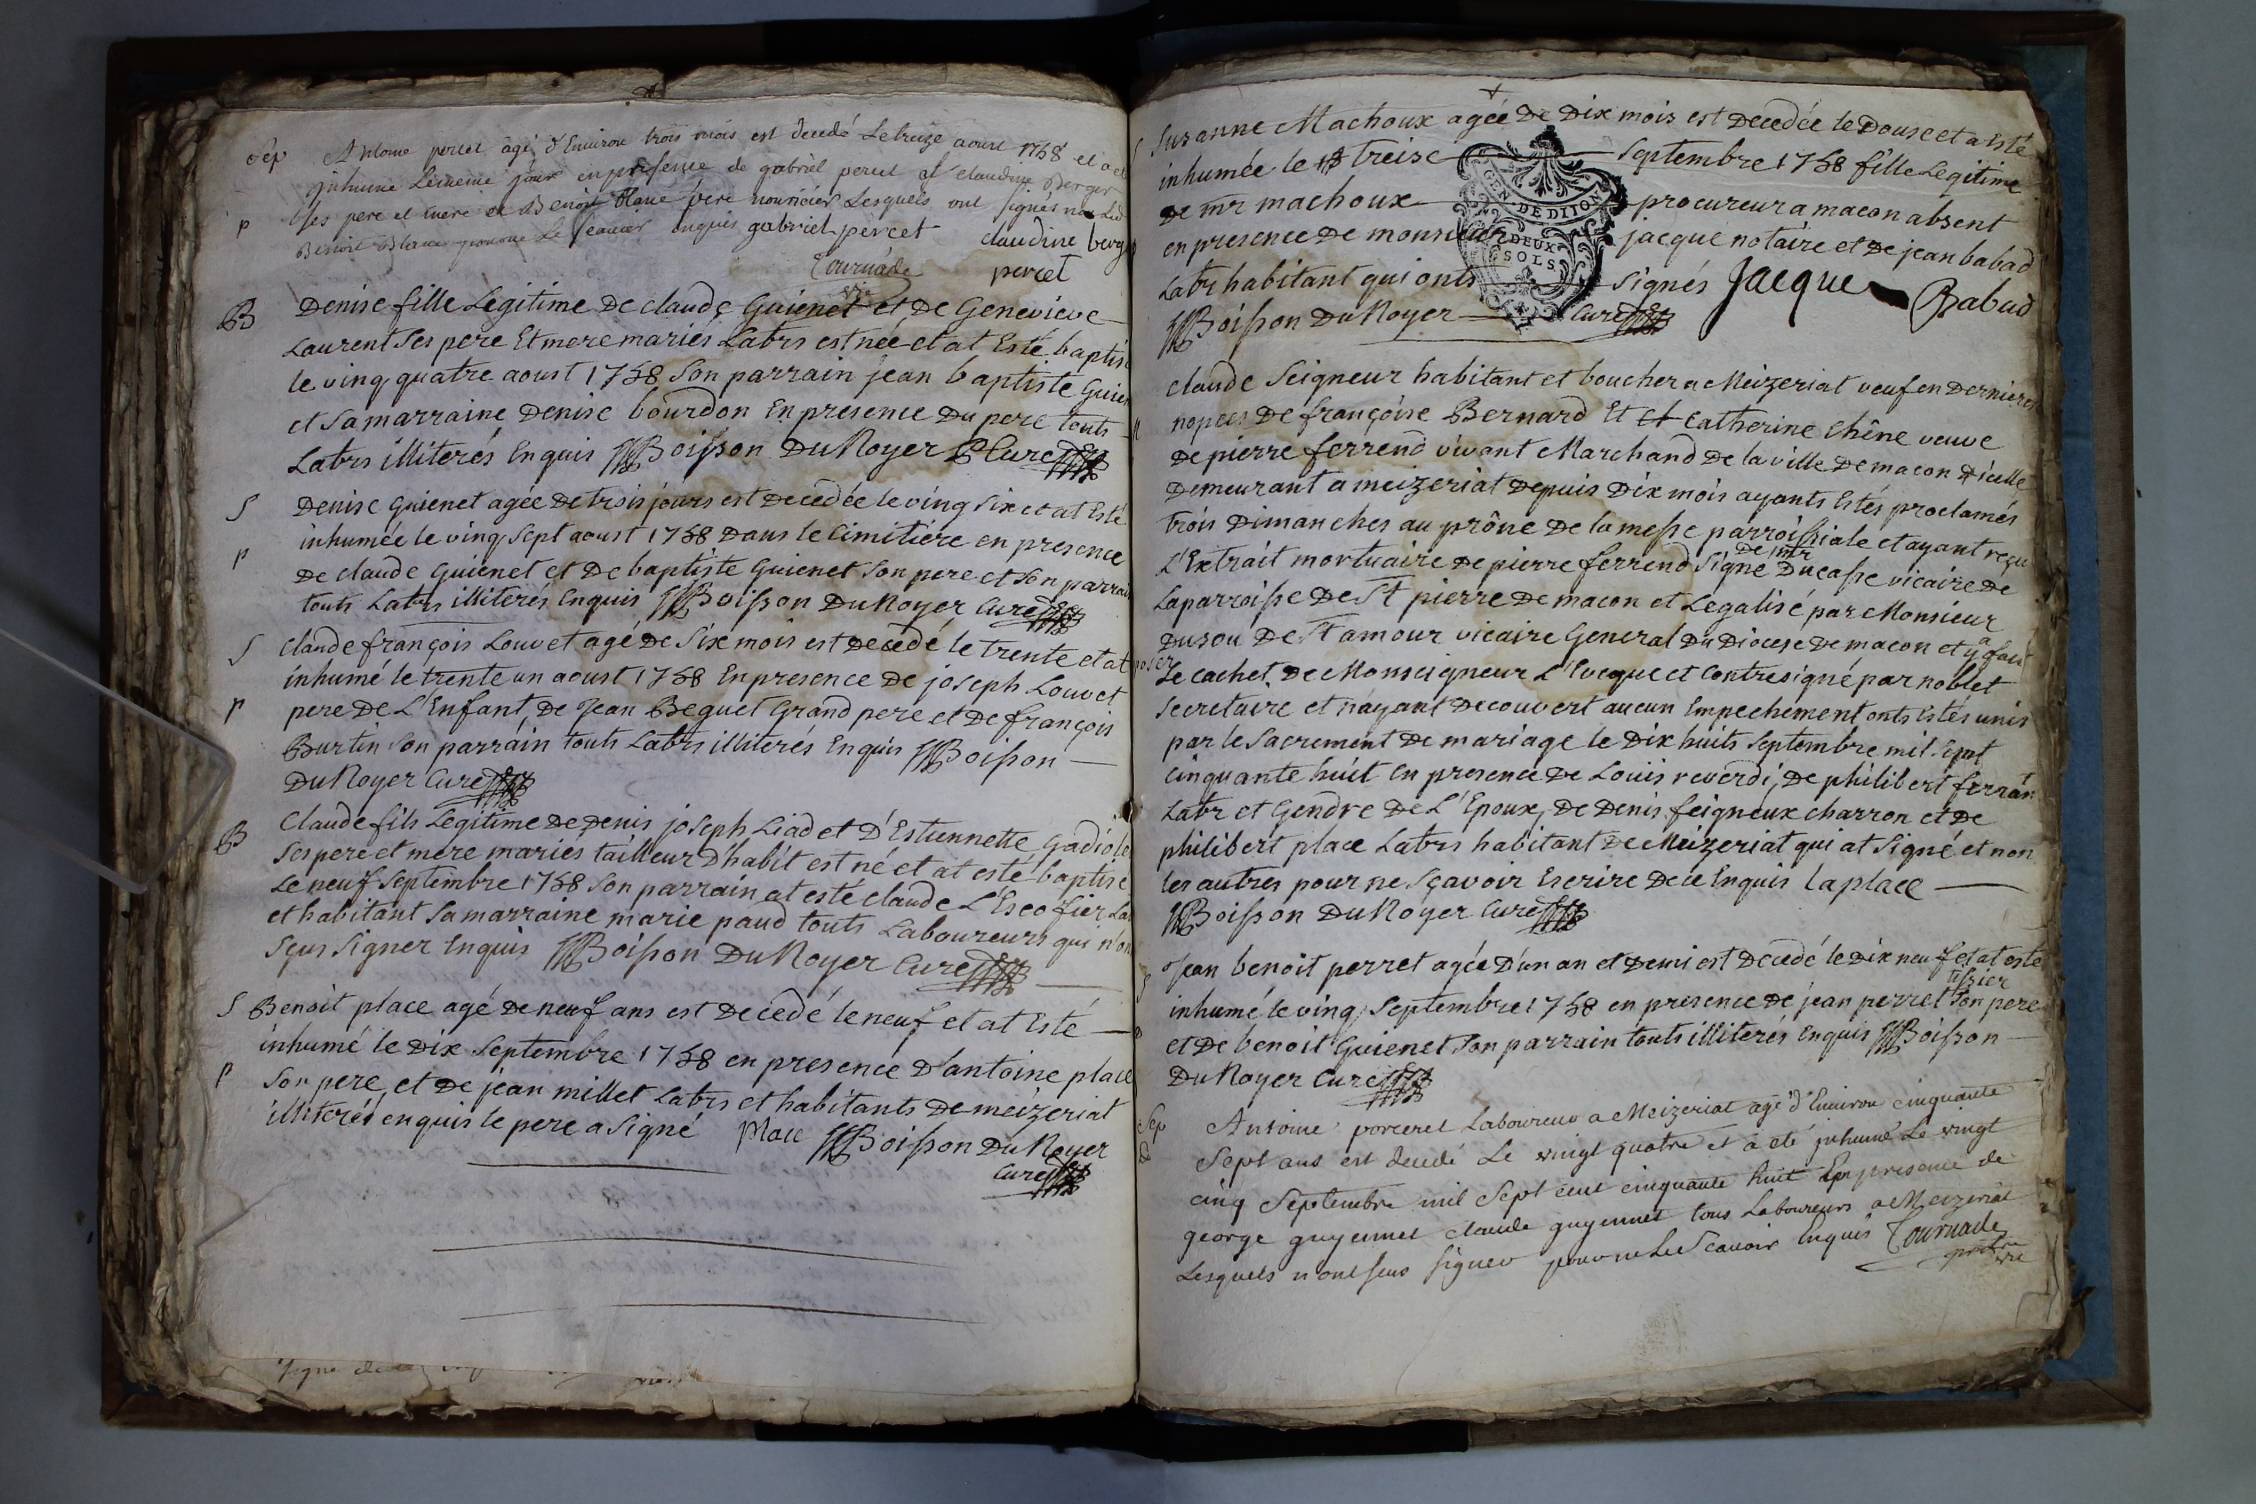 Sep Antoine percet agé d'Environ trois mois est decedé Le treize aoust 1758 et a eté
inhumé Le meme jour en presence de gabriel percet et claudine Berger
ses pere et mere et Benoit Blanc pere nouricier Lesquels ont signés non Led
P
Benoit Blanc pour ne Le scauoir enquis gabriel percet claudine berg
Tournade percet
B Denise fille Legitime De claude Guienet et De Genevieve
Laurent Ses pere Et mere mariés Labrs est née et at Esté baptis
le ving quatre aoust 1758 Son parrain jean baptiste Guien
et Sa marraine Denise bourdon En presence Du pere touts
Labrs illiterés Enquis Boisson Du Noyer Curé
S Denise Guienet agée De trois jours est Decedée le ving Six et at Esté
inhumée le ving Sept aoust 1758 Dans le Cimitiere en presence
P De claude Guienet et De baptiste Guienet Son pere et Son parrain
touts Labrs illiterés Enquis Boisson Du Noyer Curé
S Claude françois Louvet agé De Six mois est Decedé le trente et at
inhumé le trente un aoust 1758 En presence De joseph Louvet
P pere De L'Enfant, De Jean Beguet Grand pere et De françois
Burtin Son parrain touts Labrs illiterés Enquis Boisson
Du Noyer Curé
B Claude fils Legitime De Denis joseph Liad et D'Estiennette Gadiole
Ses pere et mere mariés tailleur D'habit est né et at esté baptisé
Le neuf Septembre 1758 Son parrain at esté claude L'Escofier La
et habitant Sa marraine marie paud touts Laboureurs qui n'on
Sçus Signer Enquis Boisson Du Noyer Curé
S Benoit place agé De neuf ans est Decedé le neuf et at Esté
inhumé le Dix Septembre 1758 en presence D'antoine place
P Son pere, et De jean millet Labrs et habitants De meizeriat
illiterés enquis le pere a Signé Place Boisson Du Noyer
Curé
Signé
S Susanne Machoux agée De Dix mois est Decedée le Douse et a Esté
inhumée le treise Septembre 1758 fille Legitime
De mr machoux procureur a macon absent
en presence De monsieur jacque notaire et De jean babad
Labr habitant qui onts Signés Jacque Babad
Boisson Du Noyer Curé
GEN. DE DIJON
DEUX
SOLS
claude Seigneur habitant et boucher a Meizeriat veuf en Dernieres
nopces De françoise Bernard Et et Catherine Chêne veuve
De pierre ferrend vivant Marchand De la ville De macon Dicelle
Demeurant a meizeriat Depuis Dix mois ayants Estés proclamés
trois Dimanches au prône De la messe parroissiale et ayant reçu
L'Extrait mortuaire De pierre ferrend Signé De mr Ducasse vicaire De
La parroisse De St pierre De macon et Legalisé par Monsieur
Dusou De St amour vicaire General Du Diocese De macon et y a fait
poser Le cachet De Monseigneur L'Eveque et Contresigné par noblet
Secretaire et n'ayant Decouvert aucun Empechement onts Estés unis
par le Sacrement De mariage le Dix huits Septembre mil Sept
Cinquante huit En presence De Louis reverdi, De philibert ferran
Labr et Gendre De L'Epoux, De Denis feigneux charron et De
philibert place Labrs habitant De Meizeriat qui at Signé et non
les autres pour ne Sçavoir Escrire De ce Enquis laplace
Boisson Du Noyer Curé
S Jean benoit perret agée D'un an et Demi est Decedé le Dix neuf et at esté
inhumé le ving Septembre 1758 en presence De jean perret tissier Son pere
P et De benoit Guienet Son parrain touts illiterés Enquis Boisson
Du Noyer Curé
Sep Antoine porceret Laboureur a Meizeriat agé d'Environ cinquante
Sept ans est decedé Le vingt quatre et a eté inhumé Le vingt
cinq Septembre mil Sept cent cinquante huit En presence de
george guyennet claude guyennet tous Laboureurs a Meizeriat
Lesquels n'ont sceus signer pour ne Le Scauoir Enquis Tournade
pretre
vic